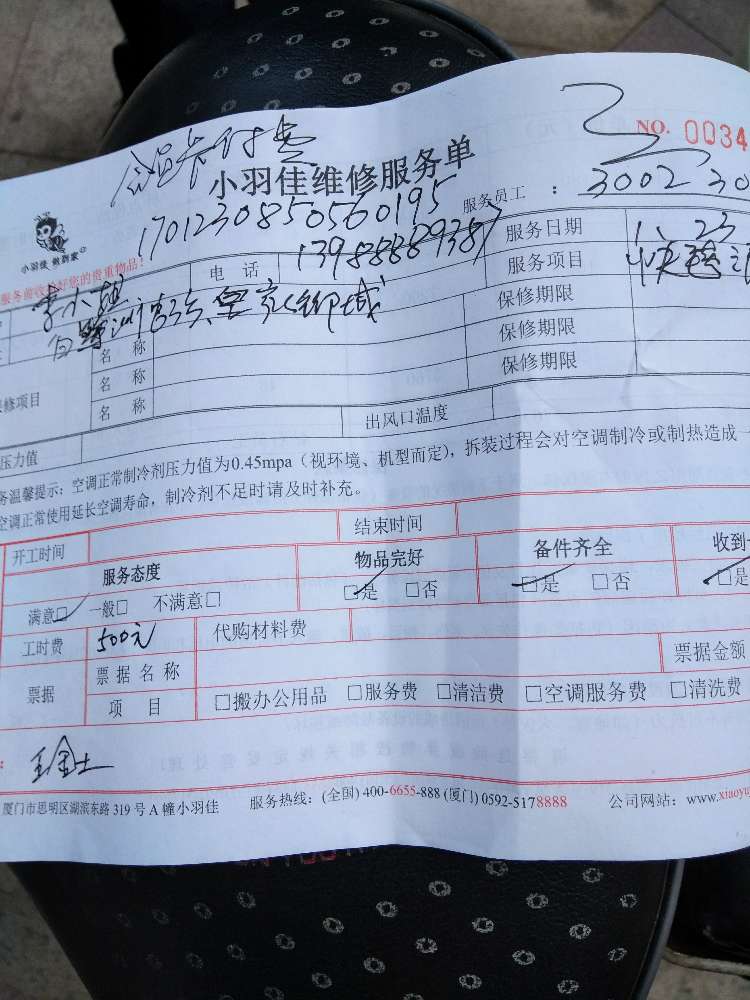 会员卡付费
NO. 0034
小羽佳维修服务单
服务员工 : 3002 30
1701230850560195
小羽佳 教到家
服务前收好您的贵重物品!
电 话 13988889387
服务日期 1. 23
李小姐
服务项目
白鹭洲 皇家御域
名 称
保修期限
名 称
保修期限
修项目
名 称
保修期限
压力值
出风口温度
务温馨提示:空调正常制冷剂压力值为0.45mpa(视环境、机型而定),拆装过程会对空调制冷或制热造成一
空调正常使用延长空调寿命,制冷剂不足时请及时补充。
开工时间
结束时间
服务态度
物品完好
备件齐全
收到
满意□ 一般□ 不满意□
□是 □否
□是 □否
□是
工时费 500元
代购材料费
票据
票据名称
票据金额
项 目
□搬办公用品 □服务费 □清洁费 □空调服务费 □清洗费
厦门市思明区湖滨东路 319 号 A 幢小羽佳
服务热线:(全国) 400-6655-888 (厦门) 0592-5178888
公司网站:www.xiaoyu